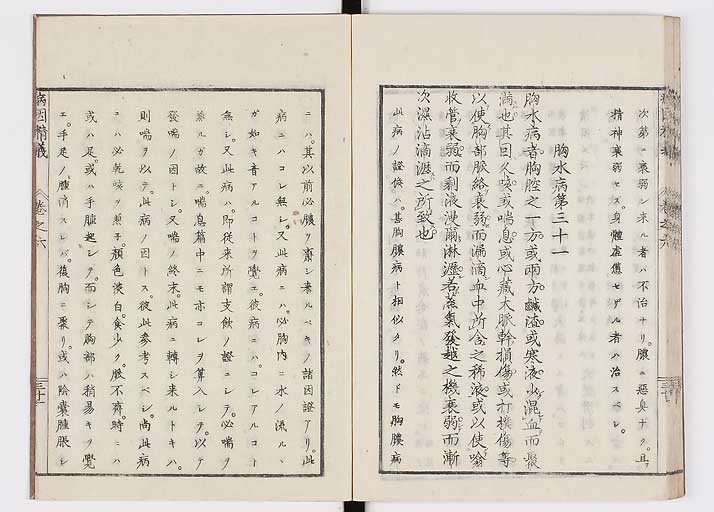 次第ニ衰弱シ来ル者ハ不治ナリ。膿ニ惡臭ナク。且
精神衰弱セズ。身體虚憊セザル者ハ治スベシ。
胸水病第三十一
胸水病者胸腔之一方或兩方鹹渣或寒液少混血而聚
滿也其因久咳或喘息或心藏大脈幹損傷或打撲傷等
以使胸部脈絡衰弱而漏滴血中所含之稀液或以使噏
收管衰弱而剩液淋瀝若蒸氣發越之機衰弱而漸
次濕沾滴瀝之所致也
此病ノ證候ハ。甚胸膿病ト相似タリ。然ドモ胸膿病
ニハ。其以前必膿ヲ釀シ来ルベキノ諸因證アリ。此
病ニハコレ無シ。又此病ニハ。必胸内ニ水ノ流ルヽ
ガ如キ音アルコトヲ覺エ。彼病ニハ。コレアルコト
無シ。又此病ハ。即從来所謂支飲ノ證ニシテ。必喘ヲ
兼ルガ故ニ。喘息篇中ニモ亦コレヲ算入シテ。以テ
發喘ノ因トシ。又喘ノ終末。此病ニ轉シ来ルトキハ。
則喘ヲ以テ。此病ノ因トス。彼此參考スベシ。尚此病
ニハ必乾咳ヲ兼子。顔色淡白食少ク。腹不齊。時ニハ
或ハ足。或ハ手腫起シテ。而シテ胸部ハ稍易キヲ覺
エ。手足ノ腫消スレバ。復胸ニ聚リ。或ハ陰囊腫脹シ
病因精義
卷之六
三十